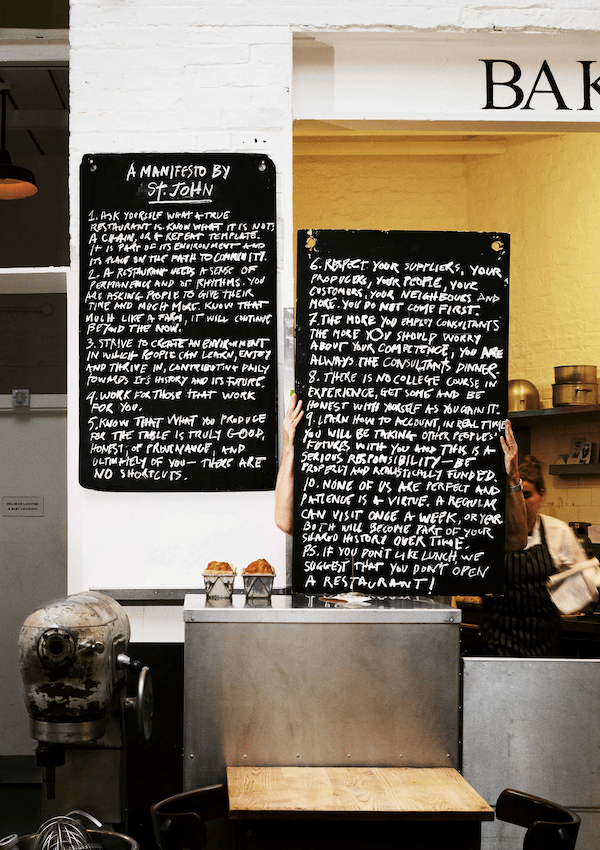 BAK
A MANIFESTO BY
ST. JOHN
1. ASK YOURSELF WHAT A TRUE
RESTAURANT IS. KNOW WHAT IT IS NOT,
A CHAIN, OR A REPEAT TEMPLATE.
IT IS PART OF ITS ENVIRONMENT AND
ITS PLACE ON THE PATH TO COMMUNITY.
2. A RESTAURANT NEEDS A SENSE OF
PERMANENCE AND OF RHYTHMS. YOU
ARE ASKING PEOPLE TO GIVE THEIR
TIME AND MUCH MORE. KNOW THAT
MUCH LIKE A FARM, IT WILL CONTINUE
BEYOND THE NOW.
3. STRIVE TO CREATE AN ENVIRONMENT
IN WHICH PEOPLE CAN LEARN, ENJOY
AND THRIVE IN, CONTRIBUTING DAILY
TOWARDS IT'S HISTORY AND ITS FUTURE.
4. WORK FOR THOSE THAT WORK
FOR YOU.
5. KNOW THAT WHAT YOU PRODUCE
FOR THE TABLE IS TRULY GOOD,
HONEST, OF PROVENANCE, AND
ULTIMATELY OF YOU — THERE ARE
NO SHORTCUTS.
6. RESPECT YOUR SUPPLIERS, YOUR
PRODUCERS, YOUR PEOPLE, YOUR
CUSTOMERS, YOUR NEIGHBOURS AND
MORE. YOU DO NOT COME FIRST.
7. THE MORE YOU EMPLOY CONSULTANTS
THE MORE YOU SHOULD WORRY
ABOUT YOUR COMPETENCE, YOU ARE
ALWAYS THE CONSULTANTS DINNER.
8. THERE IS NO COLLEGE COURSE IN
EXPERIENCE, GET SOME AND BE
HONEST WITH YOURSELF AS YOU GAIN IT.
9. LEARN HOW TO ACCOUNT, IN REAL TIME
YOU WILL BE TAKING OTHER PEOPLES'
FUTURES WITH YOU AND THIS IS A
SERIOUS RESPONSIBILITY – BE
PROPERLY AND REALISTICALLY FUNDED.
10. NONE OF US ARE PERFECT AND
PATIENCE IS A VIRTUE. A REGULAR
CAN VISIT ONCE A WEEK, OR YEAR
BOTH WILL BECOME PART OF YOUR
SHARED HISTORY OVER TIME.
PS. IF YOU DON'T LIKE LUNCH, WE
SUGGEST THAT YOU DON'T OPEN
A RESTAURANT!